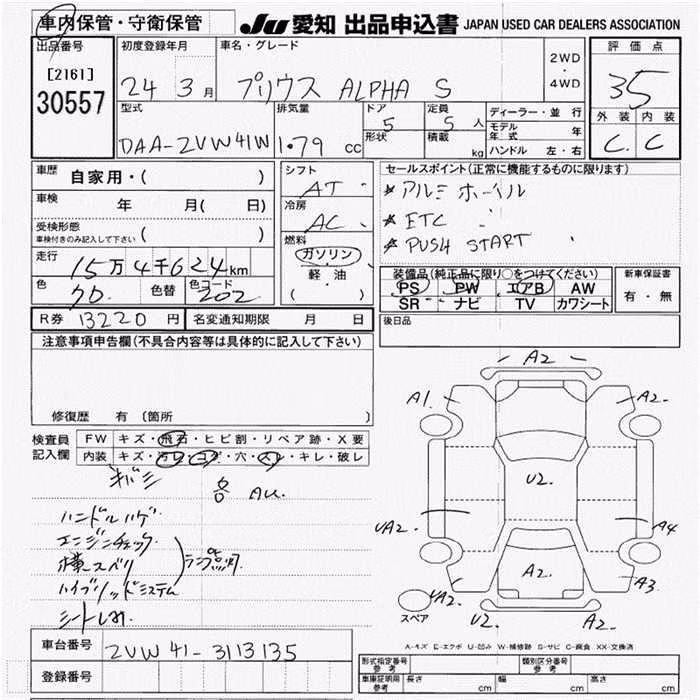 車内保管・守衛保管
JU 愛知 出品申込書 JAPAN USED CAR DEALERS ASSOCIATION
出品番号 初度登録年月 車名・グレード 2WD・4WD 評価点
[2161]
30557
24 3月 プリウス ALPHA S 35
型式 排気量 ドア 5 定員 5人 ディーラー・並行 外装 内装
DAA-ZVW41W 1.79 cc 形状 積載 kg モデル年式 年 C. C
ハンドル 左・右
車歴 自家用・( )
シフト AT
セールスポイント(正常に機能するものに限ります)
* アルミホイル
* ETC
* PUSH START
車検 年 月( 日)
冷房 AC
受検形態
車検付きのみ記入して下さい ( )
燃料 ガソリン
軽油
( )
走行 15万4千624km
色 色替 色コード 202
装備品(純正品に限り○をつけてください) 新車保証書
PS PW エアB AW 有・無
SR ナビ TV カワシート
R券 13220円 名変通知期限 月 日
後日品
注意事項申告欄(不具合内容等は具体的に記入して下さい)
修復歴 有 〔箇所 〕
検査員 FW キズ・飛石・ヒビ割・リペア跡・X要
記入欄 内装 キズ・汚レ・コゲ・穴・スレ・キレ・破レ
キバミ
AU.
ハンドルハゲ
エンジンチェック
横スベリ
ハイブリッドシステム
ランプ点灯
シートしみ
A2
A1
A2
U2.
UA2.
A4
A2.
UA2
A3
U2
A2
スペア
A-キズ E-エクボ U-凹み W-補修跡 S-サビ C-腐食 XX-交換済
車台番号 ZVW41-3113135
登録番号
形式指定番号 参考 類別区分番号 参考
車庫証明用 参考 長さ cm 幅 cm 高さ cm